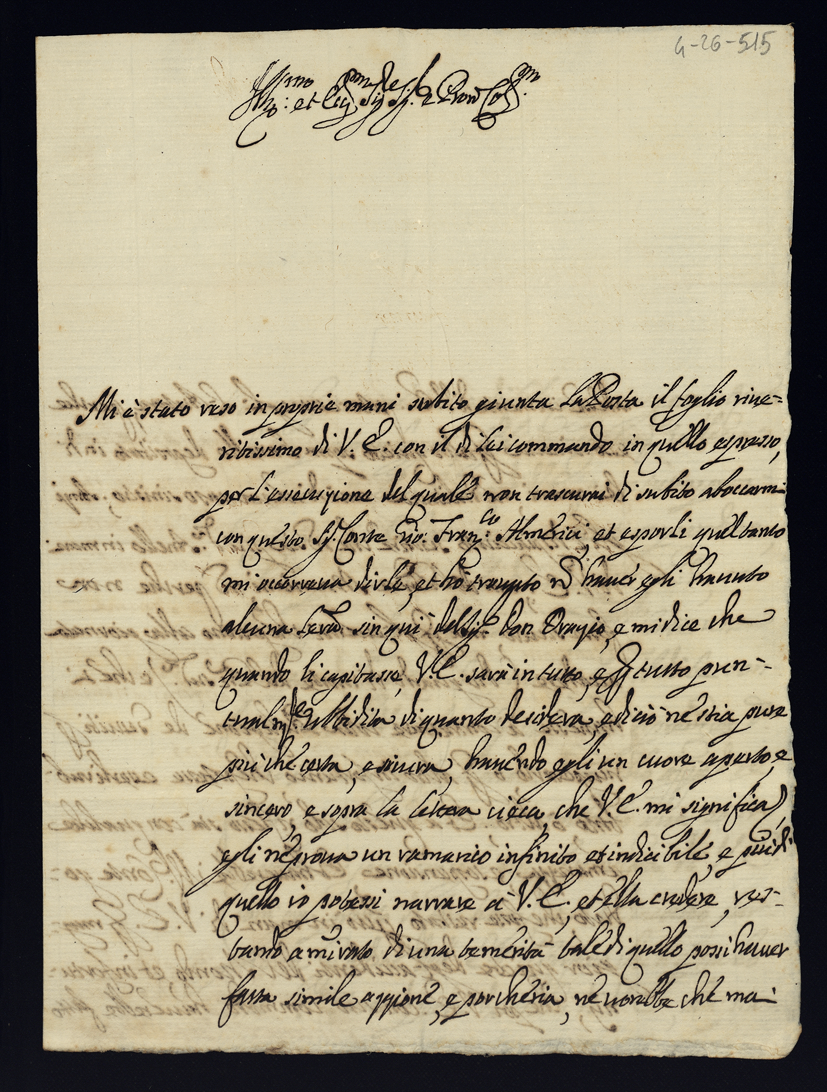 4-26-515
Ill.mo et Ecc.mo Sig.re Sig.r e Pron Col.mo
Mi è stato reso in proprie mani subito giunta La Posta il foglio rive=
ritissimo di V. E. con il di lei commando in quello espresso,
per l'essecuzione del quale non trascurai di subito aboccarmi
con questo Sig.r Conte Gio: Fran.co Almerici, et esporli quel tanto
mi occorreva dirle, et hò trovato nõ haver egli havuto
alcuna lett.ra sin quì del Sig.r Don Orazio, e mi dice che
quando li capitasse, V. E. sarà in tutto, e per tutto pun=
tualm.te ubbidita di quanto desidera, e di ciò ne stia pure
più che certa, e sicura, havendo egli un cuore aperto, e
sincero, e sopra la lettera cieca, che V. E. mi significa,
egli ne prova un ramarico infinito et indicibile, e più di
quello io potessi narrare à V. E., et ella credere, res=
tando amirato di una temerità tale di quello possi haver
fatta simile azzione, e porcheria, ne vorebbe che mai